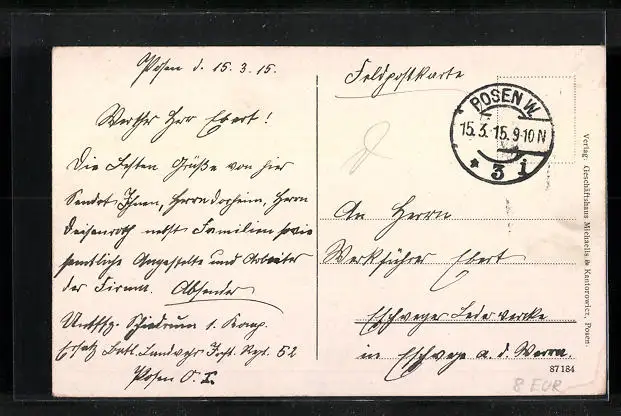 Posen d. 15.3.15.
Werther Herr Ebert!
Die besten Grüße von hier
Sendet Ihnen, Herrn Dorheim, Herrn
Deisenroth nebst Familien sowie
sämtliche Angestellte und Arbeiter
der Firma. Absender
Untffz. 1. Komp.
Ersatz Batl. Landwehr Inft. Regt. 52
Posen O. I.
Feldpostkarte
POSEN W.
15.3.15.9-10N
* 3 i
An Herrn
Werkführer Ebert
Eschweger Lederwerke
in Eschwege a. d. Werra.
87184
8 EUR
Verlag: Geschäftshaus Michaelis & Kantorowicz, Posen.